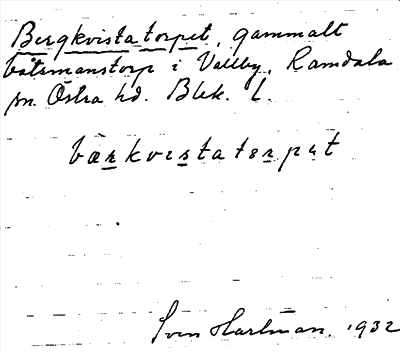 Bergkvistatorpet, gammalt
båtsmanstorp i Valleby, Ramdala
sn. Östra hd. Blek. l.
bærkvɪstatɵrpət
Sven Hartman. 1932